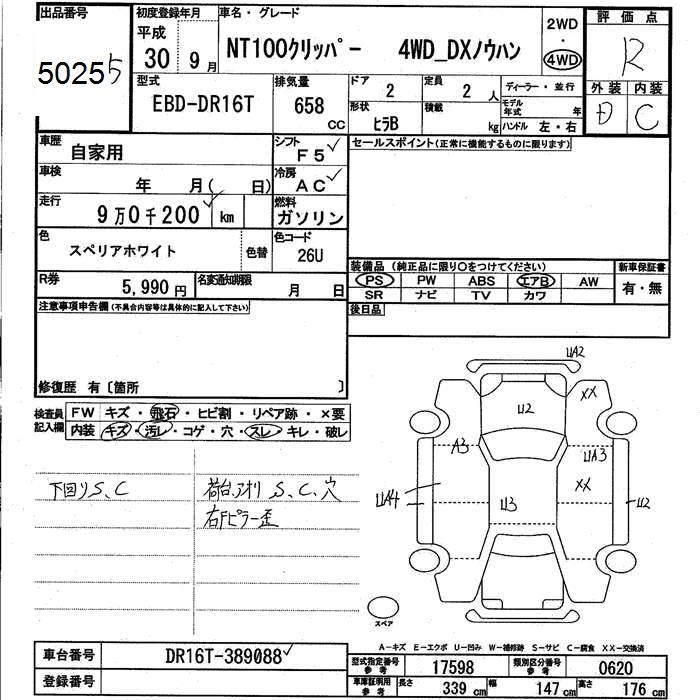 出品番号 初度登録年月 車名・グレード 2WD 評価点
平成 ・
50255 30 9月 NT100クリッパー 4WD_DXノウハン 4WD R
型式 排気量 ドア 定員 ディーラー・並行 外装 内装
EBD-DR16T 658 CC 2 2 人 モデル年式 年 C
形状 積載
ヒラB kg ハンドル 左・右
車歴 自家用 シフト F5 セールスポイント(正常に機能するものに限ります)
車検 年 月( 日) 冷房 AC
走行 9万0千200 km 燃料 ガソリン
色 スペリアホワイト 色替 色コード 26U
装備品 (純正品に限り〇をつけてください) 新車保証書
R券 5,990円 名変通知期限 月 日 PS PW ABS エアB AW 有・無
SR ナビ TV カワ
注意事項申告欄(不具合内容等は具体的に記入して下さい) 後日品
修復歴 有〔箇所 〕
検査員記入欄 FW キズ・飛石・ヒビ割・リペア跡・×要
内装 キズ・汚レ・コゲ・穴・スレ・キレ・破レ
下回りS、C 荷台アオリ S、C、穴
右Fピラー歪
UA2
XX
U2
A3 UA3
UA4 U3 XX U2
スペア
A-キズ E-エクボ U-凹み W-補修跡 S-サビ C-腐食 XX-交換済
車台番号 DR16T-389088 型式指定番号 参考 17598 類別区分番号 参考 0620
登録番号 車庫証明用 参考 長さ 339 cm 幅 147 cm 高さ 176 cm